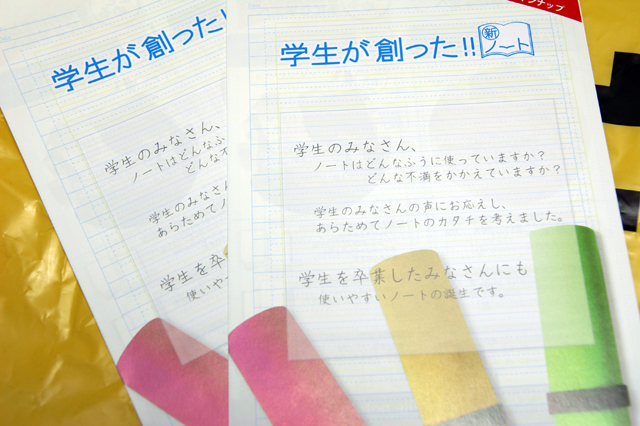 学生が創った!!
学生が創った!!
新
ノート
学生のみなさん、
ノートはどんなふ
どんな不
学生のみなさん
あらためてノ
学生を卒
使いやす
学生のみなさん、
ノートはどんなふうに使っていますか？
どんな不満をかかえていますか？
学生のみなさんの声にお応えし、
あらためてノートのカタチを考えました。
学生を卒業したみなさんにも
使いやすいノートの誕生です。